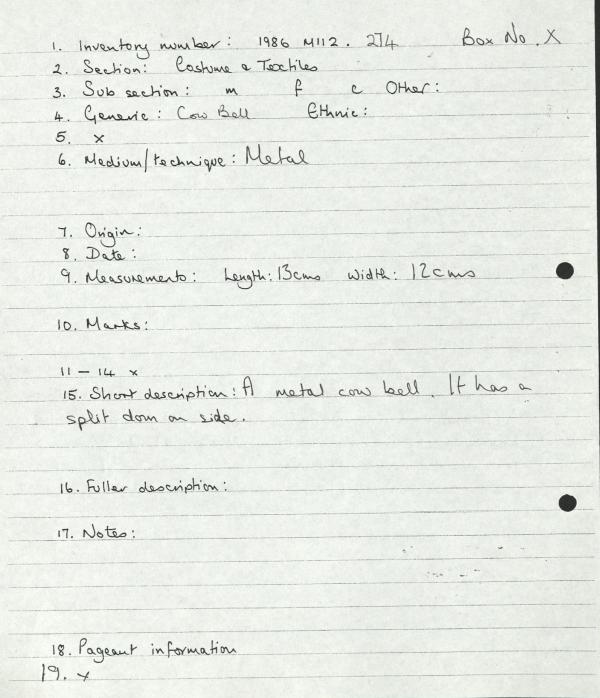 1. Inventory number: 1986 M112. 274 Box No. X
2. Section: Costume & Textiles
3. Sub section: m f c Other:
4. Generic: Cow Bell Ethnic:
5. x
6. Medium/technique: Metal
7. Origin:
8. Date:
9. Measurements: Length: 13cms Width: 12cms
10. Marks:
11 - 14 x
15. Short description: A metal cow bell. It has a
split down on side.
16. Fuller description:
17. Notes:
18. Pageant information
19. x